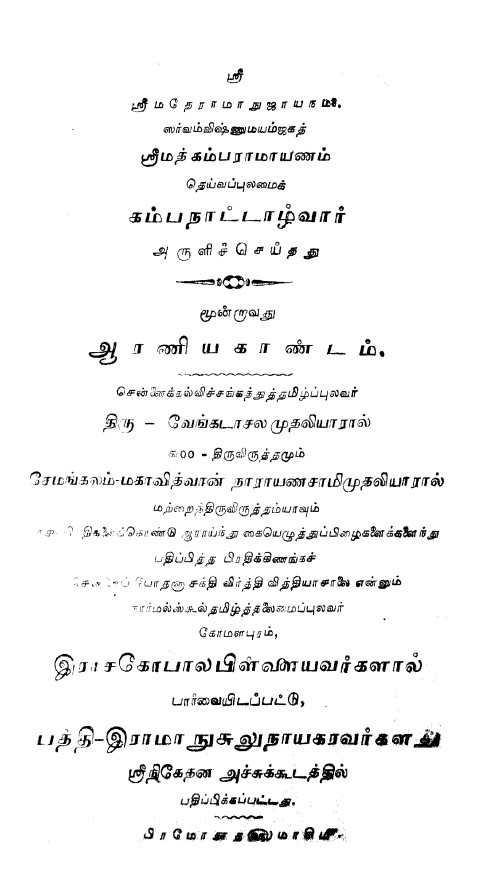 ஸ்ரீ
ஸ்ரீமதேராமாநுஜாயநம:.
ஸர்வம்விஷ்ணுமயம்ஜகத்
ஸ்ரீமத்கம்பராமாயணம்
தெய்வப்புலமைக்
கம்பநாட்டாழ்வார்
அருளிச்செய்தது
மூன்றாவது
ஆரணியகாண்டம்.
சென்னைக்கல்விச்சங்கத்துத்தமிழ்ப்புலவர்
திரு – வேங்கடாசலமுதலியாரால்
௬00 - திருவிருத்தமும்
சேமங்கலம்-மகாவித்வான் நாராயணசாமிமுதலியாரால்
மற்றைந்திருவிருத்தம்யாவும்
ஆராய்ந்து கையெழுத்துப்பிழைகளைக்களைந்து
பதிப்பித்த பிரதிக்கிணங்கச்
சக்தி விர்த்தி வித்தியாசாலை என்னும்
நார்மல்ஸ்கூல்தமிழ்த்தலைமைப்புலவர்
கோமளபுரம்,
இராசகோபாலபிள்ளையவர்களால்
பார்வையிடப்பட்டு,
பத்தி-இராமாநுசுலுநாயகரவர்களது
ஸ்ரீநிகேதன அச்சுக்கூடத்தில்
பதிப்பிக்கப்பட்டது.